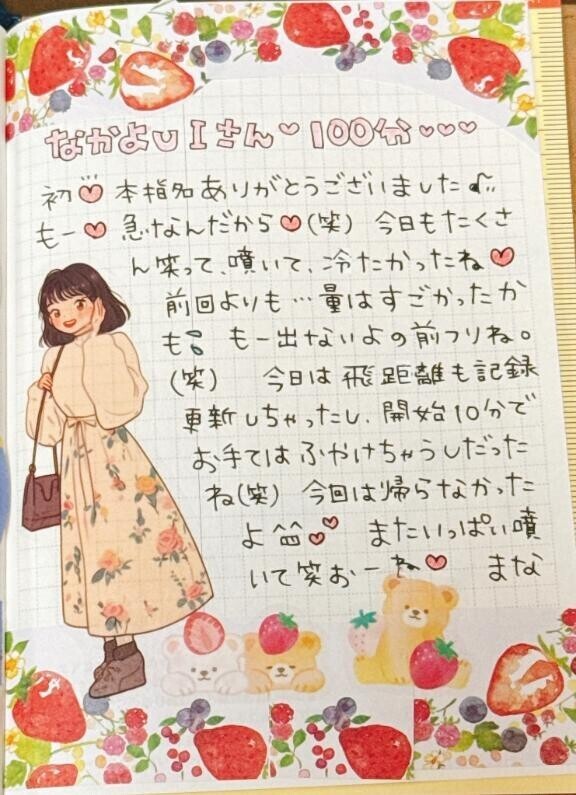 なかよしIさん♡100分♡♡♡
初♥本指名ありがとうございました♪
もー♥急なんだから♥(笑) 今日もたくさ
ん笑って、噴いて、冷たかったね♥
前回よりも…量はすごかったか
も もー出ないよの前フリね。
(笑) 今日は飛距離も記録
更新しちゃったし、開始10分で
お手てはふやけちゃうしだった
ね(笑) 今回は帰らなかった
よ ♥♥ またいっぱい噴
いて笑おーね♥ まな